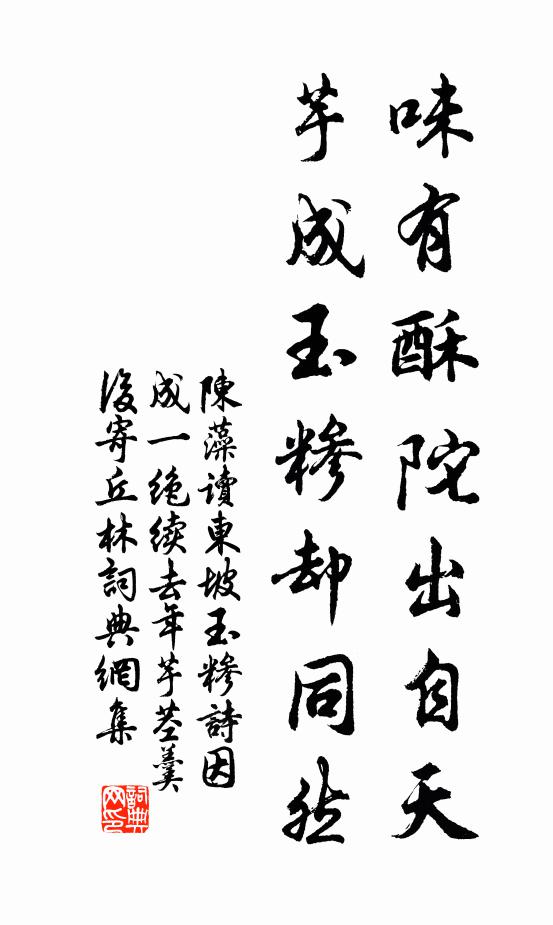 味有酥陀出自天
芋成玉糝却同然
陳藻讀東坡玉糝詩因
成一絶续去年芋茎羹
後寄丘林詞典網集
詞典网印